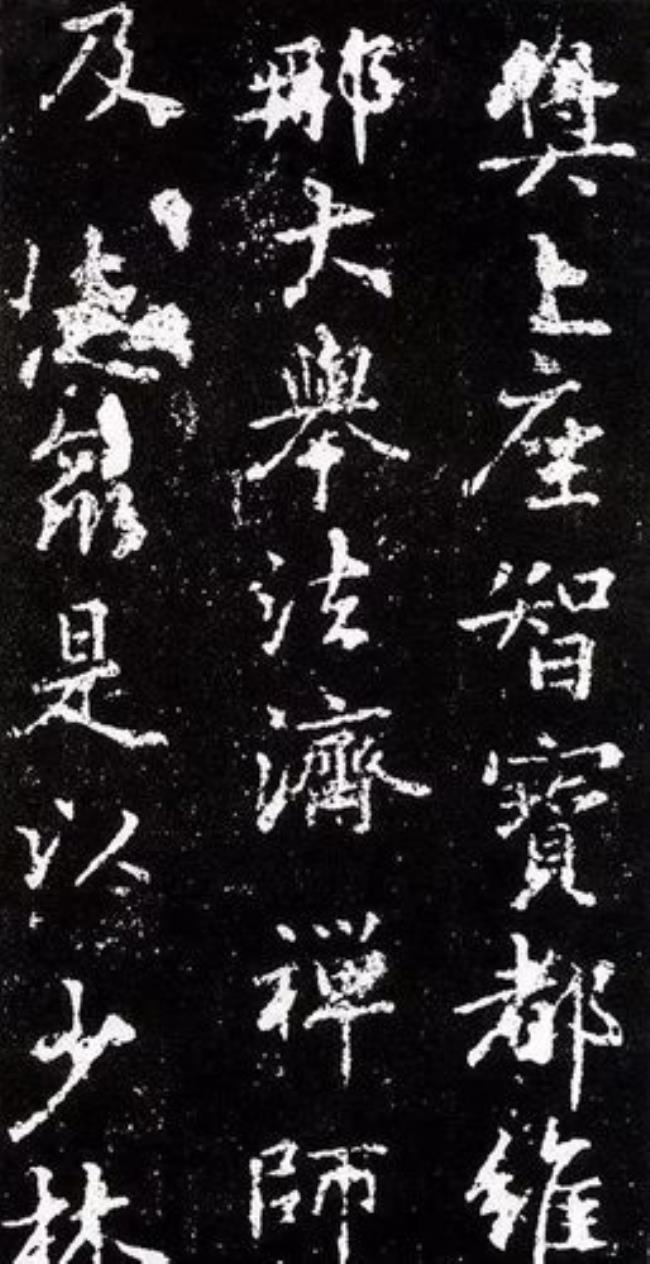 奬上座智寶都維
那大舉法濟禪師
及衆是以少林